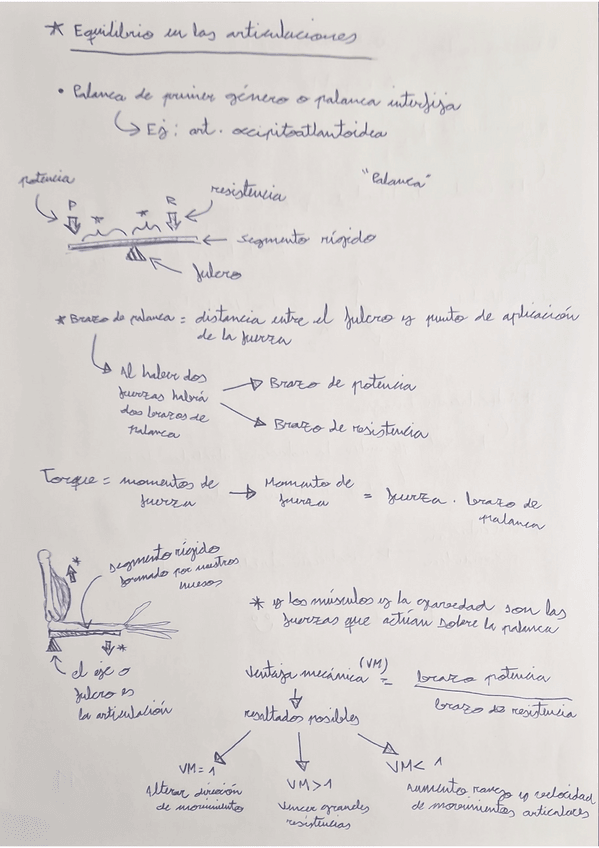 * Equilibrio en las articulaciones
• Palanca de primer género o palanca interfija
Ej: art. occipitoatlantoidea
potencia
"Palanca"
P
R
resistencia
* *
segmento rígido
fulcro
* Brazo de palanca = distancia entre el fulcro y punto de aplicación
de la fuerza
Al haber dos
fuerzas habrá
dos brazos de
palanca
Brazo de potencia
Brazo de resistencia
Torque = momentos de
fuerza
Momento de
fuerza
= fuerza . brazo de
palanca
segmento rígido
formado por nuestros
huesos
*
*
el eje o
fulcro es
la articulación
* y los músculos y la gravedad son las
fuerzas que actúan sobre la palanca
Ventaja mecánica (VM) = brazo potencia
brazo de resistencia
resultados posibles
VM = 1
Alterar dirección
de movimiento
VM > 1
Vencer grandes
resistencias
VM < 1
Aumento rango y velocidad
de movimientos articulares